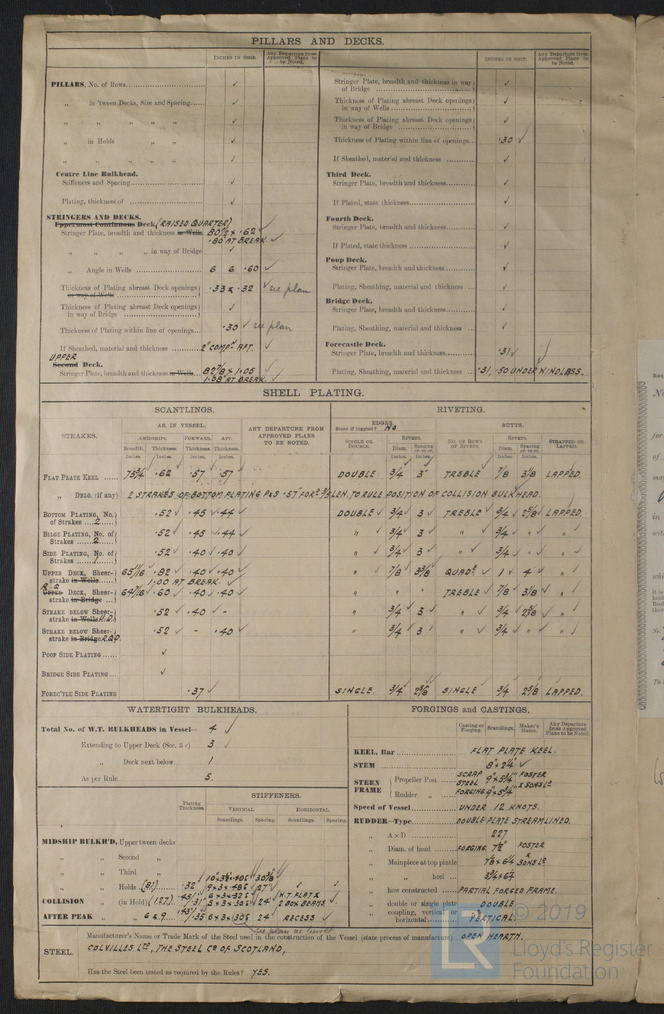 PILLARS AND DECKS.
INCHES IN SHIP.
Any Departure from Approved Plans to be Noted.
PILLARS, No. of Rows
„ in 'tween Decks, Size and Spacing
„ „ „ „ „
„ in Holds „ „
„ „ „ „
Centre Line Bulkhead.
Stiffeners and Spacing
Plating, thickness of
STRINGERS AND DECKS.
Uppermost Continuous Deck. (RAISED QUARTER)
Stringer Plate, breadth and thickness in Wells ✓
.80 AT BREAK
„ „ „ „ in way of Bridge
„ Angle in Wells 6 6 .60 ✓
Thickness of Plating abreast Deck openings in way of Wells .33 & .32 ✓ see plan
Thickness of Plating abreast Deck openings in way of Bridge ✓
Thickness of Plating within line of openings .30 ✓ see plan
If Sheathed, material and thickness 2" COMPN. AFT. ✓
UPPER
Second Deck.
Stringer Plate, breadth and thickness in Wells 82⅞ x 1.05
1.08 AT BREAK
INCHES IN SHIP.
Any Departure from Approved Plans to be Noted.
Stringer Plate, breadth and thickness in way of Bridge ✓
Thickness of Plating abreast Deck openings in way of Wells ✓
Thickness of Plating abreast Deck openings in way of Bridge ✓
Thickness of Plating within line of openings .30 ✓
If Sheathed, material and thickness ✓
Third Deck.
Stringer Plate, breadth and thickness ✓
If Plated, state thickness ✓
Fourth Deck.
Stringer Plate, breadth and thickness ✓
If Plated, state thickness ✓
Poop Deck.
Stringer Plate, breadth and thickness ✓
Plating, Sheathing, material and thickness ✓
Bridge Deck.
Stringer Plate, breadth and thickness ✓
Plating, Sheathing, material and thickness ✓
Forecastle Deck.
Stringer Plate, breadth and thickness .31 ✓
Plating, Sheathing, material and thickness .31, .50 UNDER WINDLASS.
SHELL PLATING.
SCANTLINGS.
RIVETING.
STRAKES.
AS IN VESSEL.
AMIDSHIPS. FORWARD. AFT.
Breadth. Thickness. Thickness. Thickness.
Inches. Inches. Inches. Inches.
ANY DEPARTURE FROM APPROVED PLANS TO BE NOTED.
EDGES.
State if joggled? No
SINGLE OR DOUBLE.
RIVETS.
Diam.
Inches. Inches.
BUTTS.
NO. OF ROWS OF RIVETS.
RIVETS.
Diam.
Inches. Inches.
STRAPPED OR LAPPED.
FLAT PLATE KEEL .62 .57 .57 DOUBLE ¾ 3" TREBLE ⅞ 3⅛ LAPPED.
„ DBLG. (if any) 2 STRAKES OF BOTTOM PLATING P&S .57 FOR LEN. TO RULE POSITION OF COLLISION BULKHEAD.
BOTTOM PLATING, No. of Strakes 2 .52 .45 .44 DOUBLE ¾ 3 TREBLE ¾ 2⅝ LAPPED.
BILGE PLATING, No. of Strakes 2 .52 .45 .44 „ ¾ 3 „ ¾ „ „
SIDE PLATING, No. of Strakes 1 .52 .40 .40 „ ¾ 3 „ ¾ „ „
UPPER DECK, Sheerstrake in Wells .82 .40 .40 „ ⅞ QUADR. 1 4 „
1.00 AT BREAK
R.Q.
UPPER DECK, Sheerstrake in Bridge .60 .40 .40 „ „ „ TREBLE ⅞ 3⅛ „
STRAKE BELOW Sheerstrake in Wells .52 .40 - „ ¾ 3 „ ¾ 2⅝ „
STRAKE BELOW Sheerstrake in Bridge R.Q.D. .52 - .40 „ ¾ 3 „ ¾ „ „
POOP SIDE PLATING ✓
BRIDGE SIDE PLATING ✓
FOREC'TLE SIDE PLATING .37 SINGLE. ¾ SINGLE ¾ 2⅝ LAPPED.
WATERTIGHT BULKHEADS.
Total No. of W.T. BULKHEADS in Vessel— 4 ✓
Extending to Upper Deck (Sec. 3 c) 3 ✓
„ Deck next below 1
As per Rule 5.
Plating Thickness.
STIFFENERS.
VERTICAL. HORIZONTAL.
Scantlings. Spacing. Scantlings. Spacing.
MIDSHIP BULKH'D, Upper tween decks
„ „ Second „
„ „ Third „
„ „ Holds (81) .32 27 ✓
COLLISION „ (in Hold) (127) 24 W.T. FLAT & 2 BOX BEAMS
AFTER PEAK „ 6 & 9 .35 6 x 3 x .30 24 RECESS ✓
FORGINGS and CASTINGS.
Casting or Forging. Scantlings. Maker's Name. Any Departure from Approved Plans to be Noted.
KEEL, Bar FLAT PLATE KEEL.
STEM 8" x 2¼" ✓
STERN FRAME
Propeller Post SCRAP STEEL FOSTER
Rudder „ FORGING & SONS LD
Speed of Vessel UNDER 12 KNOTS.
RUDDER—Type DOUBLE PLATE STREAMLINED.
„ A x D 227
„ Diam. of head FORGING. 7½" FOSTER
„ Mainpiece at top pintle & SONS LD
„ „ heel
„ how constructed PARTIAL FORGED FRAME.
„ double or single plate DOUBLE
„ coupling, vertical or horizontal VERTICAL.
STEEL.
Manufacturer's Name or Trade Mark of the Steel used in the construction of the Vessel (state process of manufacture) OPEN HEARTH.
COLVILLES. LTD, THE STEEL CO OF SCOTLAND,
Has the Steel been tested as required by the Rules? YES.
© 2019
LR
Lloyd's Register
Foundation